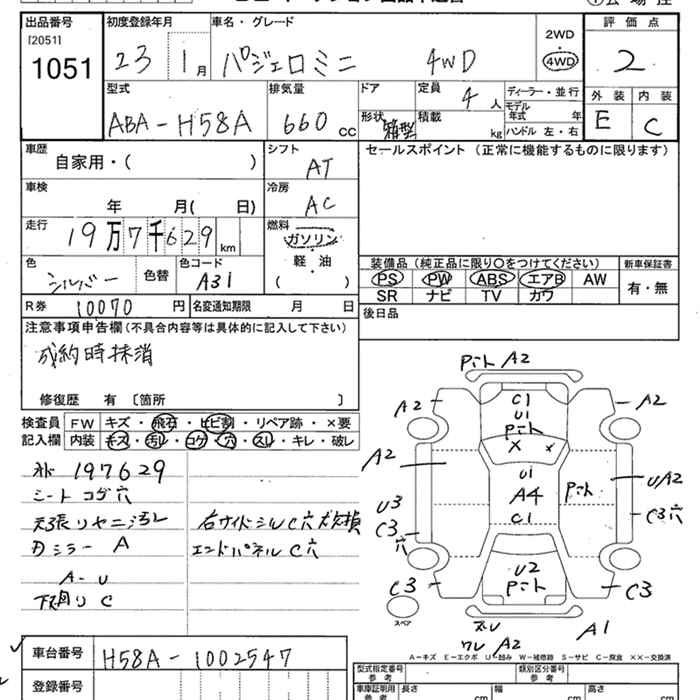 出品番号 初度登録年月 車名・グレード 2WD 評価点
[2051] 1051 23 1月 パジェロミニ 4WD 4WD 2
型式 排気量 ドア 定員 4人 ディーラー・並行 外装 内装
ABA-H58A 660cc 形状 箱型 積載 kg モデル年式 年 E C
ハンドル 左・右
車歴 シフト セールスポイント (正常に機能するものに限ります)
自家用・( ) AT
車検 冷房
年 月( 日) AC
走行 燃料
19万7千629km ガソリン
色 色替 色コード 軽油 装備品 (純正品に限り○をつけてください) 新車保証書
シルバー A31 ( ) PS PW ABS エアB AW 有・無
R券 10070円 名変通知期限 月 日 SR ナビ TV カワ
注意事項申告欄 (不具合内容等は具体的に記入して下さい) 後日品
成約時抹消
修復歴 有 〔箇所 〕
検査員 FW キズ・飛石・ヒビ割・リペア跡・×要
記入欄 内装 キズ・汚レ・コゲ・穴・スレ・キレ・破レ
197629
シートコゲ穴
天張リヤニ汚レ 右サイドシルC穴欠損
ミラー A エンドパネルC穴
A-U
下廻りC
A2
A2 C1 A2
U1
X
A2 U1 U/A2
A4
U3 C1 C3穴
C3
穴
C3 U2 C3
スペア
A2 A1
A-キズ E-エクボ U-凹み W-補修跡 S-サビ C-腐食 XX-交換済
車台番号 H58A-1002547
型式指定番号 参考 類別区分番号 参考
登録番号 車庫証明用 参考 長さ cm 幅 cm 高さ cm